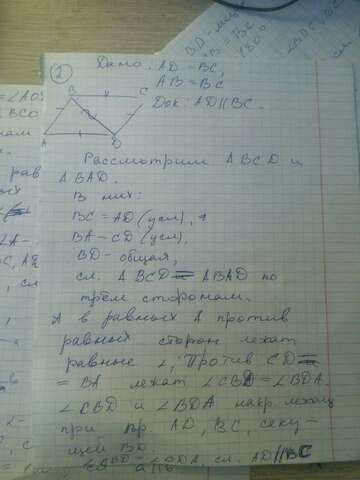 2
Дано: AD = BC,
AB = BC
Док: AD || BC.
B
C
A
D
Рассмотрим Δ BCD и
Δ BAD.
В них:
BC = AD (усл),
BA - CD (усл),
BD - общая,
сл. Δ BCD = Δ BAD по
трём сторонам.
А в равных Δ против
равных сторон лежат
равные ∠, Против CD =
= BA лежат ∠CBD = ∠BDA.
∠CBD и ∠BDA накр. лежащ
при пр. AD, BC, секу-
щей BD.
сл. AD || BC